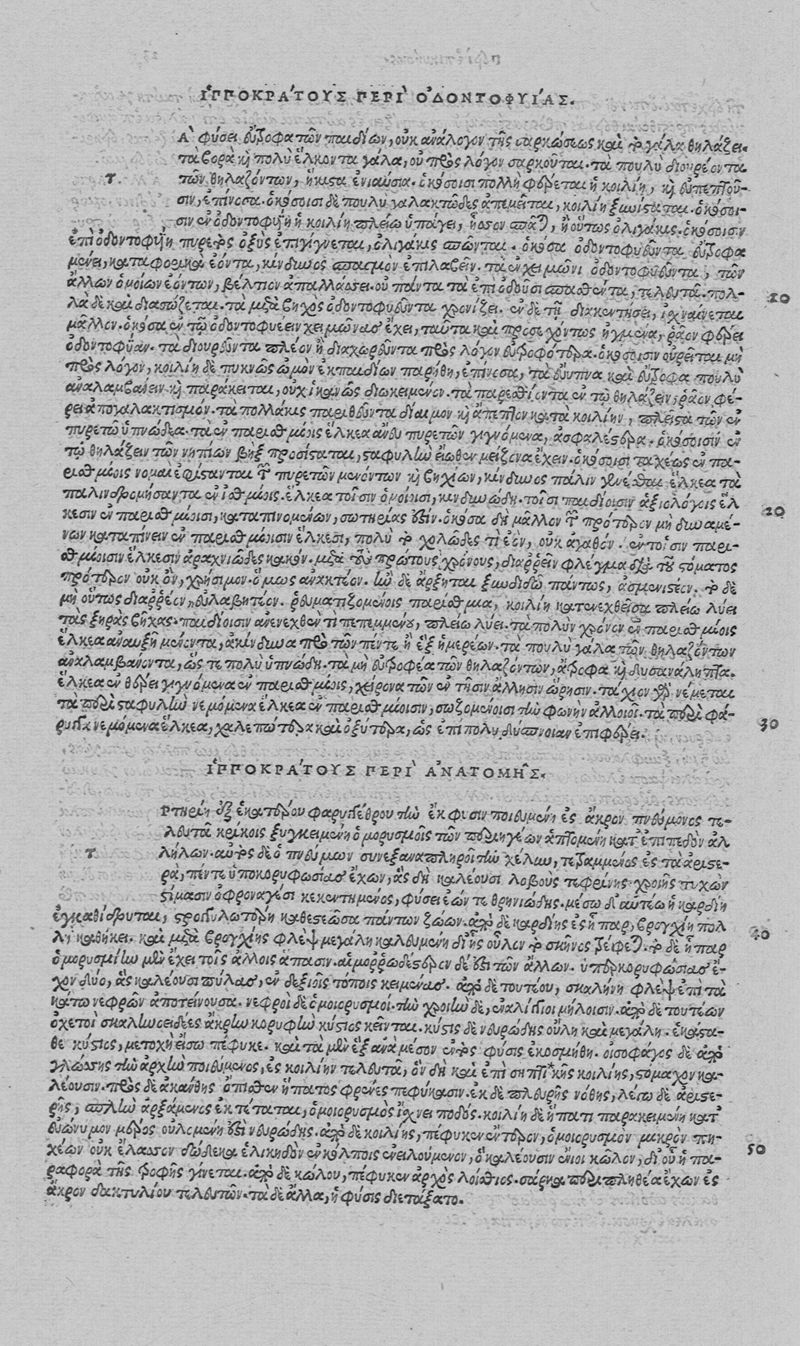 ἹΠΠΟΚΡΆΤΟΥΣ ΠΕΡῚ ὈΔΟΝΤΟΦΥΪ́ΑΣ.
Ἂ φύσει εὔτροφα τῶν παιδίων, οὐκ ἀνάλογον τῆς σαρκώσεως καὶ τὸ γάλα θηλάζει.
τὰ βορὰ κỳ πολὺ ἕλκοντα γάλα, οὐ πρὸς λόγον σαρκοῦται. τὰ πουλὺ διουρέοντα
τ. τῶν θηλαζόντων, ἥκιστα ἐναύσια. ὁκόσοισι πολλὴ φέρεται ἡ κοιλίη, κỳ εὐπεπτοῦ-
σιν, ἐπίνοσα. ὁκόσοισι δὲ πουλὺ γαλακτῶδες ἀπεμεῖται, κοιλίη ξυνίσταται. ὁκόσοι-
σιν ἐν ὀδοντοφυΐῃ ἡ κοιλίη πλείω ὑπάγει, ἧσσον σπᾶται, ἢ οὕτως ὀλιγάκις. ὁκόσοισιν
ἐπὶ ὀδοντοφυΐῃ πυρετὸς ὀξὺς ἐπιγίγνεται, ὀλιγάκις σπῶνται. ὁκόσα ὀδοντοφυεῦντα εὔτροφα
μένει, καταφορικὰ ἐόντα, κίνδυνος σπασμὸν ἐπιλαβεῖν. τὰ ἐν χειμῶνι ὀδοντοφυεῦντα, τῶν
ἄλλων ὁμοίων ἐόντων, βέλτιον ἀπαλλάσσει. οὐ πάντα τὰ ἐπὶ ὀδοῦσι σπασθέντα, τελευτᾷ. πολ-
λὰ δὲ καὶ διασώζεται. τὰ μετὰ βηχὸς ὀδοντοφυεῦντα χρονίζει. ἐν δὲ τῇ διακεντήσει, ἰσχναίνεται
μᾶλλον. ὁκόσα ἐν τῷ ὀδοντοφυέειν χειμῶνας ἔχει, ταῦτα καὶ προσεχόντως ἠγμένα, ῥᾷον φέρει
ὀδοντοφυΐαν. τὰ διουρεῦντα πλέον ἢ διαχωρεῦντα πρὸς λόγον εὐτροφώτερα. ὁκόσοισιν οὐρεῖται μὴ
πρὸς λόγον, κοιλίη δὲ πυκνῶς ὠμὸν ἐκ παιδίων παρήθη, ἐπίνοσα, τὰ εὔυπνα καὶ εὔτροφα πουλὺ
ἀναλαμβάνειν κỳ παράκειται, οὐχ ἱκανῶς διωκειμένον. τὰ παρεσθίοντα ἐν τῷ θηλάζειν, ῥᾷον φέ-
ρει ἀπογαλακτισμόν. τὰ πολλάκις παρηθεῦντα δίαιμον κỳ ἄπεπτον κατὰ κοιλίην, πλεῖστα τῶν ἐν
πυρετῷ ὑπνώδεα. τὰ ἐν παρισθμίοις ἕλκεα ἄνευ πυρετῶν γιγνόμενα, ἀσφαλέστερα. ὁκόσοισιν ἐν
τῷ θηλάζειν τῶν νηπίων βὴξ προσίσταται, σταφυλὴν εἴωθεν μείζονα ἔχειν. ὁκόσοισι ταχέως ἐν πα-
ρισθμίοις νομαὶ ἐφίστανται τῶν πυρετῶν μενόντων κỳ βηχίων, κίνδυνος πάλιν γενέσθαι ἕλκεα. τὰ
παλινδρομήσαντα ἐν ἰσθμίοις ἕλκεα τοῖσιν ὁμοίοισι, κινδυνώδη. τοῖσι παιδίοισιν ἀξιολόγοις ἕλ
κεσιν ἐν παρισθμίοισι, καταπινομένων, σωτηρίας ἐστίν. ὁκόσα δὴ μᾶλλον τῶν πρότερον μὴ δυναμέ-
νων καταπίνειν ἐν παρισθμίοισιν ἕλκεσι, πολὺ τὸ χολῶδες τὶ ἐὸν, οὐκ ἀγαθόν. ἐν τοῖσιν παρι-
σθμίοισιν ἕλκεσιν ἀραχνιῶδες κακόν. μετὰ τοὺς πρώτους χρόνους, διαρρεῖν φλέγμα διὰ τοῦ στόματος
πρότερον οὐκ ὂν, χρήσιμον. ὅμως ἀνακτέον. ἢν δὲ ἄρξηται ξυνδιδῷ πάντως, ἀσμενιστέον. τὸ δὲ
μὴ οὕτως διαρρέον, εὐλαβητέον. ῥευματιζομένοις παρίσθμια, κοιλίη κατενεχθεῖσα πλείω λύει
τὰς ξηρὰς βῆχας. παιδίοισιν ἀνενεχθέν τι πεπεμμένον, πλείω λύει. τὰ πολὺν χρόνον ἐν παρισθμίοις
ἕλκεα ἀναυξῆ μένοντα, ἀκίνδυνα πρὸ τῶν πέντε ἢ ἓξ ἡμερέων. τὰ πουλὺ γάλα τῶν θηλαζόντων
ἀναλαμβάνοντα, ὡς τὸ πολὺ ὑπνώδη. τὰ μὴ εὔτροφα τῶν θηλαζόντων, ἄτροφα κỳ δυσανάληπτα.
ἕλκεα ἐν θέρει γιγνόμενα ἐν παρισθμίοις, χείρονα τῶν ἐν τῇσιν ἄλλῃσιν ὥρῃσιν. τάχιον γὰρ νέμεται
τὰ περὶ σταφυλὴν νεμόμενα ἕλκεα ἐν παρισθμίοισιν, σωζομένοισι τὴν φωνὴν ἀλλοιοῖ. τὰ περὶ φά-
ρυγγα νεμόμενα ἕλκεα, χαλεπώτερα καὶ ὀξύτερα, ὡς ἐπὶ πολὺ δύσπνοιαν ἐπιφέρει.
20
20
30
ἹΠΠΟΚΡΆΤΟΥΣ ΠΕΡῚ ἈΝΑΤΟΜΗ͂Σ.
Ρτηρίη ἐξ ἑκατέρου φαρυγγέθρου τὴν ἔκφυσιν ποιευμένη ἐς ἄκρον πνεύμονος τε-
λευτᾷ κρίκοις ξυγκειμένη ὁμορυσμοῖς τῶν περιηγέων ἁπτομένη κατ' ἐπίπεδον ἀλ
τ. λήλων. αὐτὸς δὲ ὁ πνεύμων συνεξαναπληροῖ τὴν χέλυν, τετραμμένος ἐς τὰ ἀριστε-
ρὰ, πέντε ὑποκορυφώσιας ἔχων, ἃς δὴ καλέουσι λοβοὺς τεφρίνης χροιῆς τυχὼν
στίμασιν ὀφρυοναγέσι κεκεντημένος, φύσει ἐὼν τεθρηνιώδης. μέσῳ δ' αὐτέῳ ἡ καρδίη
ἐγκαθίδρυται, στρογγυλωτέρη καθεστεῶσα πάντων ζώων. ἀπὸ δὲ καρδίης ἐς ἧπαρ, βρογχίη πολ
λὴ καθήκει. καὶ μετὰ βρογχίης φλὲψ μεγάλη καλευμένη δι' ἧς οὖλον τὸ σκῆνος τρέφεται. τὸ δὲ ἧπαρ
ὁμορυσμίην μὲν ἔχει τοῖς ἄλλοις ἅπασιν. αἱμορρωδέστερον δέ ἐστι τῶν ἄλλων. ὑπερκορυφώσιας ἔ-
χον δύο, ἃς καλέουσι πύλας, ἐν δεξιοῖς τόποις κειμένας. ἀπὸ δὲ τουτέου, σκαληνὴ φλὲψ ἐπὶ τὰ
κάτω νεφρῶν ἀποτείνουσα. νεφροὶ δὲ ὁμοιορυσμοὶ. τὴν χροιὴν δὲ, ἐναλίγκιοι μήλοισιν. ἀπὸ δὲ τουτέων
ὀχετοὶ σκαληνοειδέες ἄκρην κορυφὴν κύστιος κεῖνται. κύστις δὲ νευρώδης οὔλη καὶ μεγάλη. ἑκάστο-
θε κύστιος, μετοχὴ εἴσω πέφυκε. καὶ τὰ μὲν ἓξ ἀνὰ μέσον ἐντὸς φύσις ἐκοσμήθη. οἰσοφάγος δὲ ἀπὸ
γλώσσης τὴν ἀρχὴν ποιευμένος, ἐς κοιλίην τελευτᾷ, ὃν δὴ καὶ ἐπὶ σηπτικῆς κοιλίης, στόμαχον κα-
λέουσιν. πρὸς δὲ ἀκάνθης ὄπισθεν ἥπατος φρένες πεφύκασιν. ἐκ δὲ πλευρῆς νόθης, λέγω δὲ ἀριστε-
ρῆς, σπλὴν ἀρξάμενος ἐκτέταται, ὁμοιορυσμὸς ἴχνει ποδός. κοιλίη δὲ ἥπατι παρακειμένη κατ'
εὐώνυμον μέρος οὐλομένη ἐστὶ νευρώδης. ἀπὸ δὲ κοιλίης, πέφυκεν ἔντερον, ὁμοιορυσμον μακρὸν πη-
χέων οὐκ ἔλασσον δώδεκα ἑλικηδὸν ἐν κόλποις ἐνειλούμενον, ὃ καλέουσιν ἔνιοι κῶλον, δι' οὗ ἡ πα-
ραφορὰ τῆς τροφῆς γίνεται. ἀπὸ δὲ κώλου, πέφυκεν ἀρχὸς λοίσθιος. σάρκα περιπληθέα ἔχων ἐς
ἄκρον δακτυλίου τελευτῶν. τὰ δὲ ἄλλα, ἡ φύσις διετάξατο.
40
50